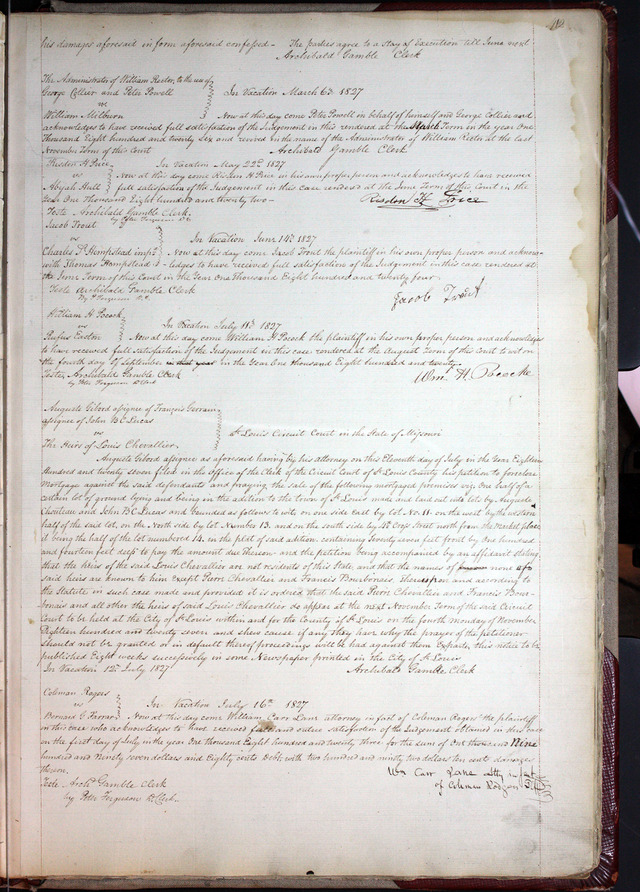 his damages aforesaid in form aforesaid confessed - The parties agree to a stay of Execution till June next
Archibald Gamble Clerk
The Administrator of William Rector, to the use of
George Collier and Peter Powell
In Vacation March 6th 1827
vs
William Milburn
Now at this day come Peter Powell in behalf of himself and George Collier and
acknowledges to have received full satisfaction of the Judgement in this rendered at the March Term in the year One
Thousand Eight hundred and twenty Six and revived in the name of the Administrator of William Rector at the last
November Term of this Court Archibald Gamble Clerk
Risdon H Price
In Vacation May 22d 1827
vs
Now at this day come Risdon H Price in his own proper person and acknowledges to have received
Abijah Hull
full satisfaction of the Judgement in this case rendered at the June Term of this Court in the
Year One Thousand Eight hundred and twenty two -
Risdon H Price
Teste Archibald Gamble Clerk
by Peter Ferguson D.C.
Jacob Trout
In Vacation June 14th 1827
vs
Charles S. Hempstead impd
with Thomas Hempstead
Now at this day come Jacob Trout the plaintiff in his own proper person and acknow-
-ledges to have received full satisfaction of the Judgement in this case rendered at
the June Term of this Court in the Year One thousand Eight hundred and twenty four
Teste Archibald Gamble Clerk
By P Ferguson D.C.
Jacob Trout
William H Pocock
In Vacation July 11th 1827
vs
Rufus Easton
Now at this day come William H Pocock the plaintiff in his own proper person and acknowledges
to have received full satisfaction of the Judgement in this case rendered at the August Term of this Court to wit on
the fourth day of September in that year in the Year One thousand Eight hundred and twenty
Teste, Archibald Gamble Clerk
by Peter Ferguson D Clerk
Wm. H. Pococke
Auguste Gibord assignee of François Gerrain
assignee of John B C Lucas
vs
St Louis Circuit Court in the State of Missouri
The Heirs of Louis Chevallier
Auguste Gibord assignee as aforesaid having by his attorney on this Eleventh day of July in the Year Eighteen
Hundred and twenty seven filed in the Office of the Clerk of the Circuit Court of St Louis County his petition to foreclose
Mortgage against the said defendants and praying the sale of the following mortgaged premises viz One half of a
certain lot of ground lying and being in the adition to the town of St Louis made and laid out into lots by Auguste
Chouteau and John B C Lucas and bounded as follows to wits on one side East by Lot No. 11 on the west by the western
half of the said lot, on the North side by lot Number 13, and on the south side by the Cross Street north from the Market place
it being the half of the lot numbered 14 in the plat of said adition containing Seventy seven feet front by One hundred
and fourteen feet deep to pay the amount due Thereon - and the petition being accompanied by an affidavit stating
that the heirs of the said Louis Chevallier are not residents of this State, and that the names of none of
said heirs are known to him except Piere Chevallier and Francis Bourbonais, Thereupon and according to
the Statute in such case made and provided it is ordered that the said Piere Chevallier and Francis Bour-
-bonais and all other the heirs of said Louis Chevallier do appear at the next November Term of the said Circuit
Court to be held at the City of St Louis within and for the County of St Louis on the fourth monday of November
Eighteen hundred and twenty seven and shew cause if any they have why the prayer of the petitioner
should not be granted or in default thereof proceedings will be had against them Exparte, this notice to be
published Eight weeks successively in some Newspaper printed in the City of St Louis
In Vacation 12th July 1827
Archibald Gamble Clerk
Coleman Rogers
vs
In Vacation July 16th 1827
Bernard G Farrar
Now at this day come William Carr Lane attorney in fact of Coleman Rogers the plaintiff
in this case who acknowledges to have received full and entire satisfaction of the Judgement obtained in this case
on the first day of July in the year One thousand Eight hundred and twenty three for the sum of One thousand Nine
hundred and Ninety seven dollars and Eighty cents Debt, with two hundred and ninety two dollars ten cents damages
thereon,
Wm Carr Lane atty in fact
of Coleman Rodgers
Teste Archd Gamble Clerk
by Peter Ferguson D. Clerk.